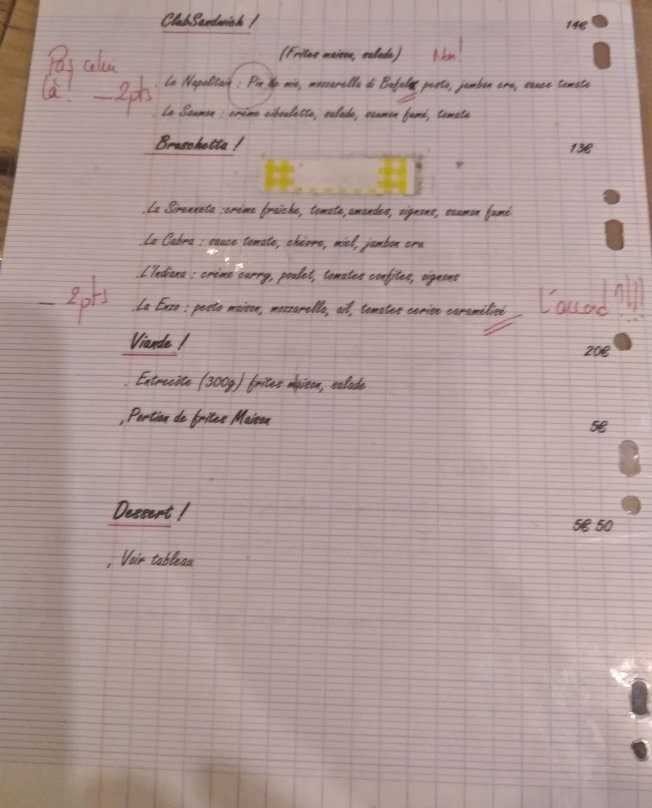 ClubSandwich ! 14€
(Frites maison, salade) Non !
Pas celui
là ! - 2pts
. Le Napolitain : Pin de mie, mozzarella di Bufala pesto, jambon cru, sauce tomate
. Le Saumon : crème ciboulette, salade, saumon fumé, tomate
Bruschetta ! 13€
. La Sirenneta : crème fraîche, tomate, amandes, oignons, saumon fumé
. La Cabra : sauce tomate, chèvre, miel, jambon cru
. L'Indiana : crème curry, poulet, tomates confites, oignons
- 2pts
. La Enzo : pesto maison, mozzarella, ail, tomates cerise caramélisé L'accord !!!!!
Viande ! 20€
. Entrecôte (300g) frites maison, salade
. Portion de frites Maison 5€
Dessert ! 5€ 50
. Voir tableau